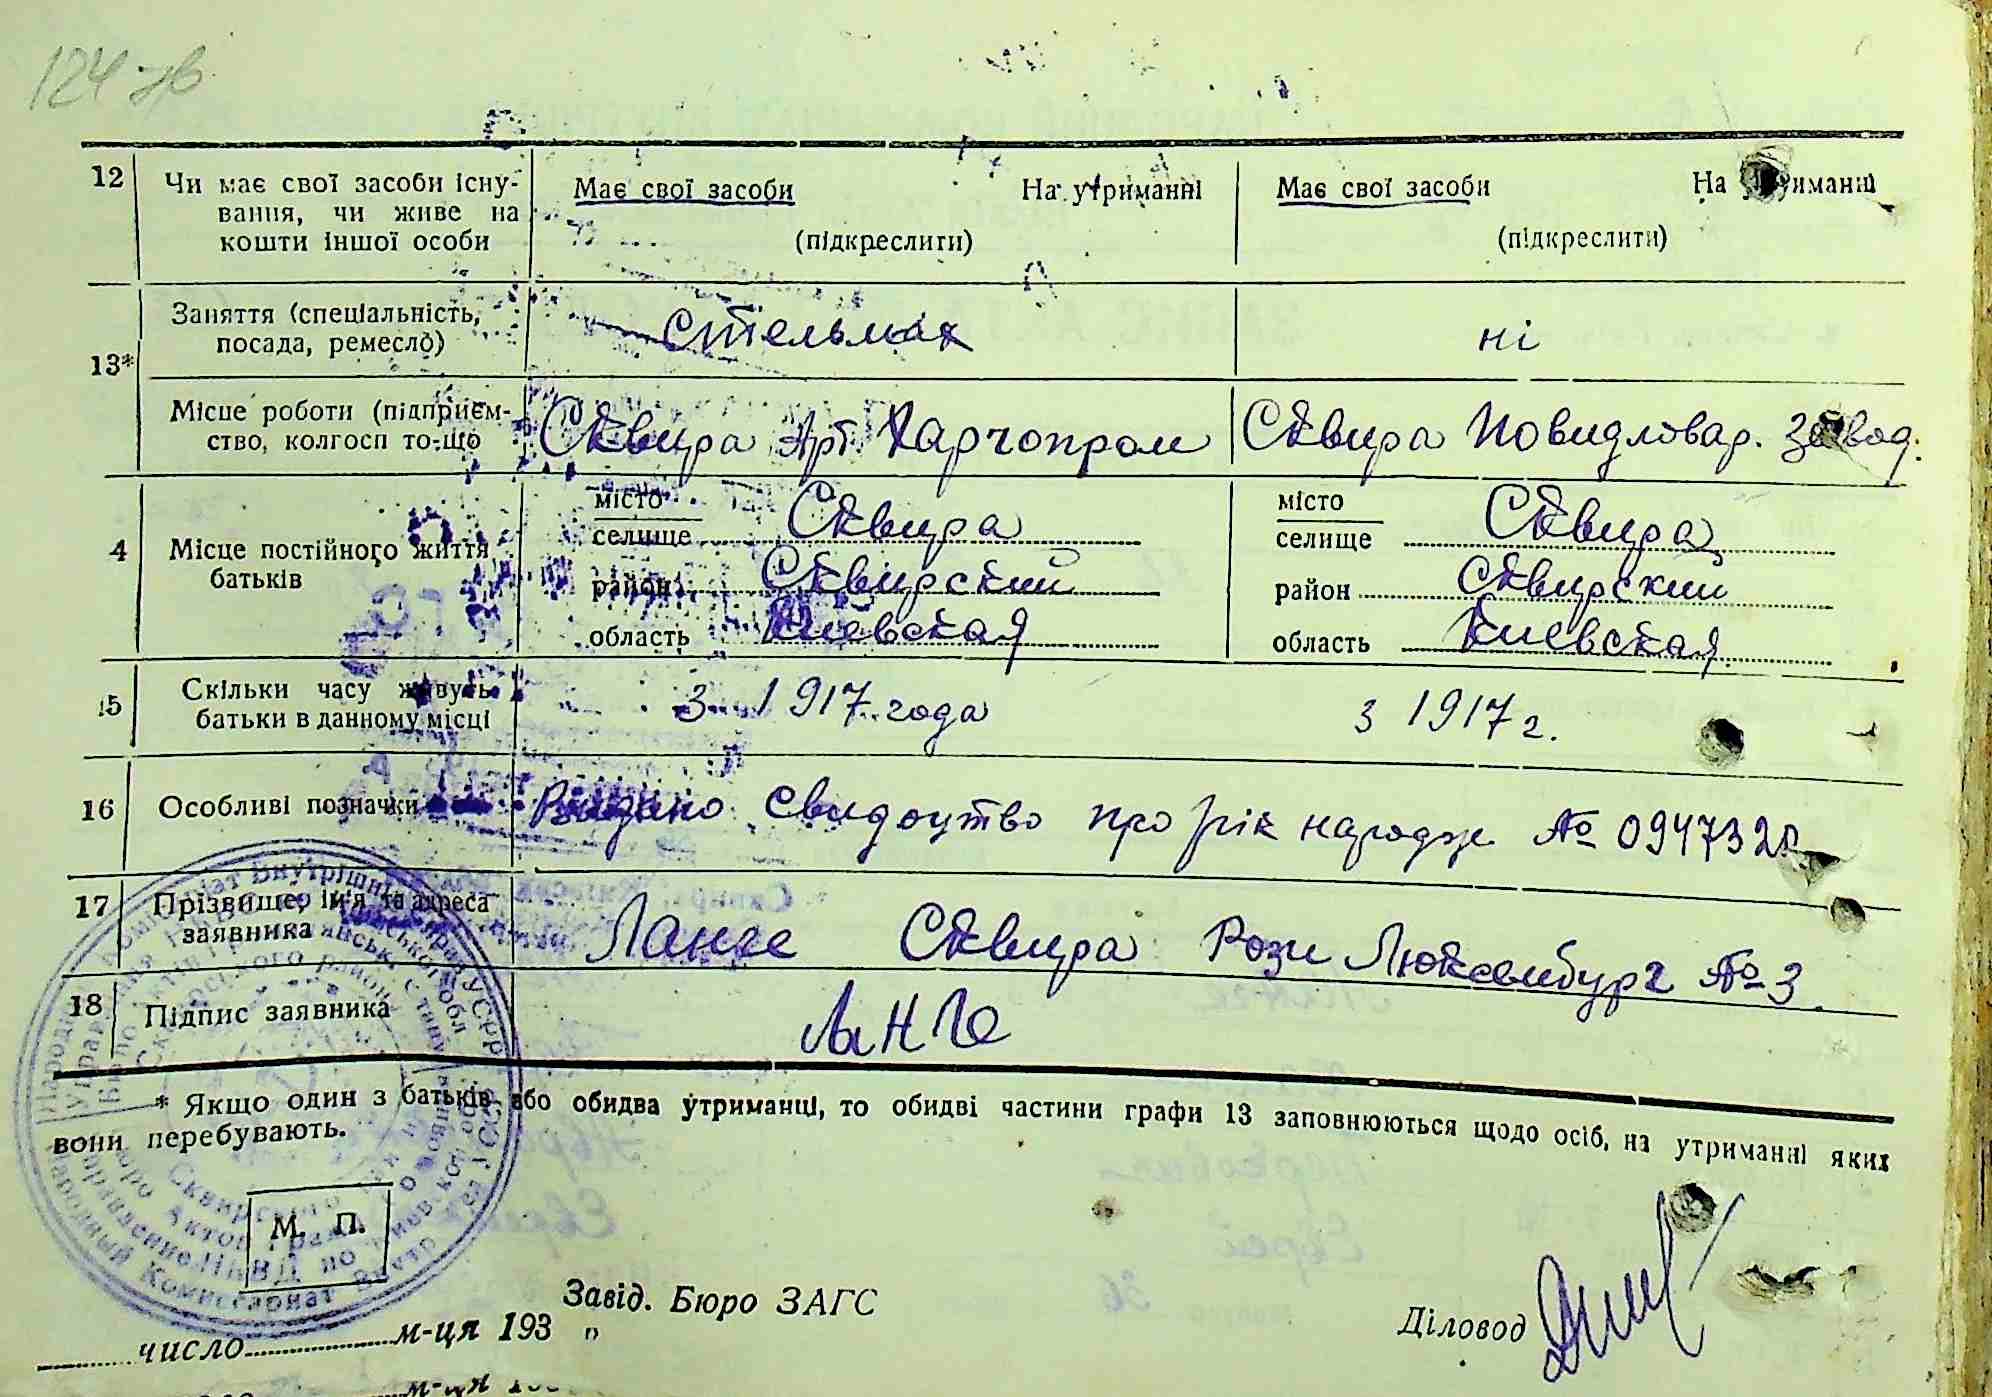 124 зв
12 Чи має свої засоби існу- Має свої засоби На утриманні Має свої засоби На утриманні
вання, чи живе на
кошти іншої особи (підкреслити) (підкреслити)
13* Заняття (спеціальність, посада, ремесло) Стельмах ні
Місце роботи (підприєм- Сквира Арт. Харчопром Сквира Повидловар. завод.
ство, колгосп то-що
4 Місце постійного життя батьків
місто Сквира місто Сквира
селище селище
район Сквирский район Сквирский
область Киевская область Киевская
15 Скільки часу живуть З 1917 года з 1917 г.
батьки в данному місці
16 Особливі позначки Видано свидоцтво про рік народж. №
17 Прізвище, ім'я та адреса Ланге Сквира Рози Люксембург № 3.
заявника
18 Підпис заявника Ланге
* Якщо один з батьків або обидва утриманці, то обидві частини графи 13 заповнюються щодо осіб, на утриманні яких
вони перебувають.
М. П.
Завід. Бюро ЗАГС
Діловод
число м-ця 193 "